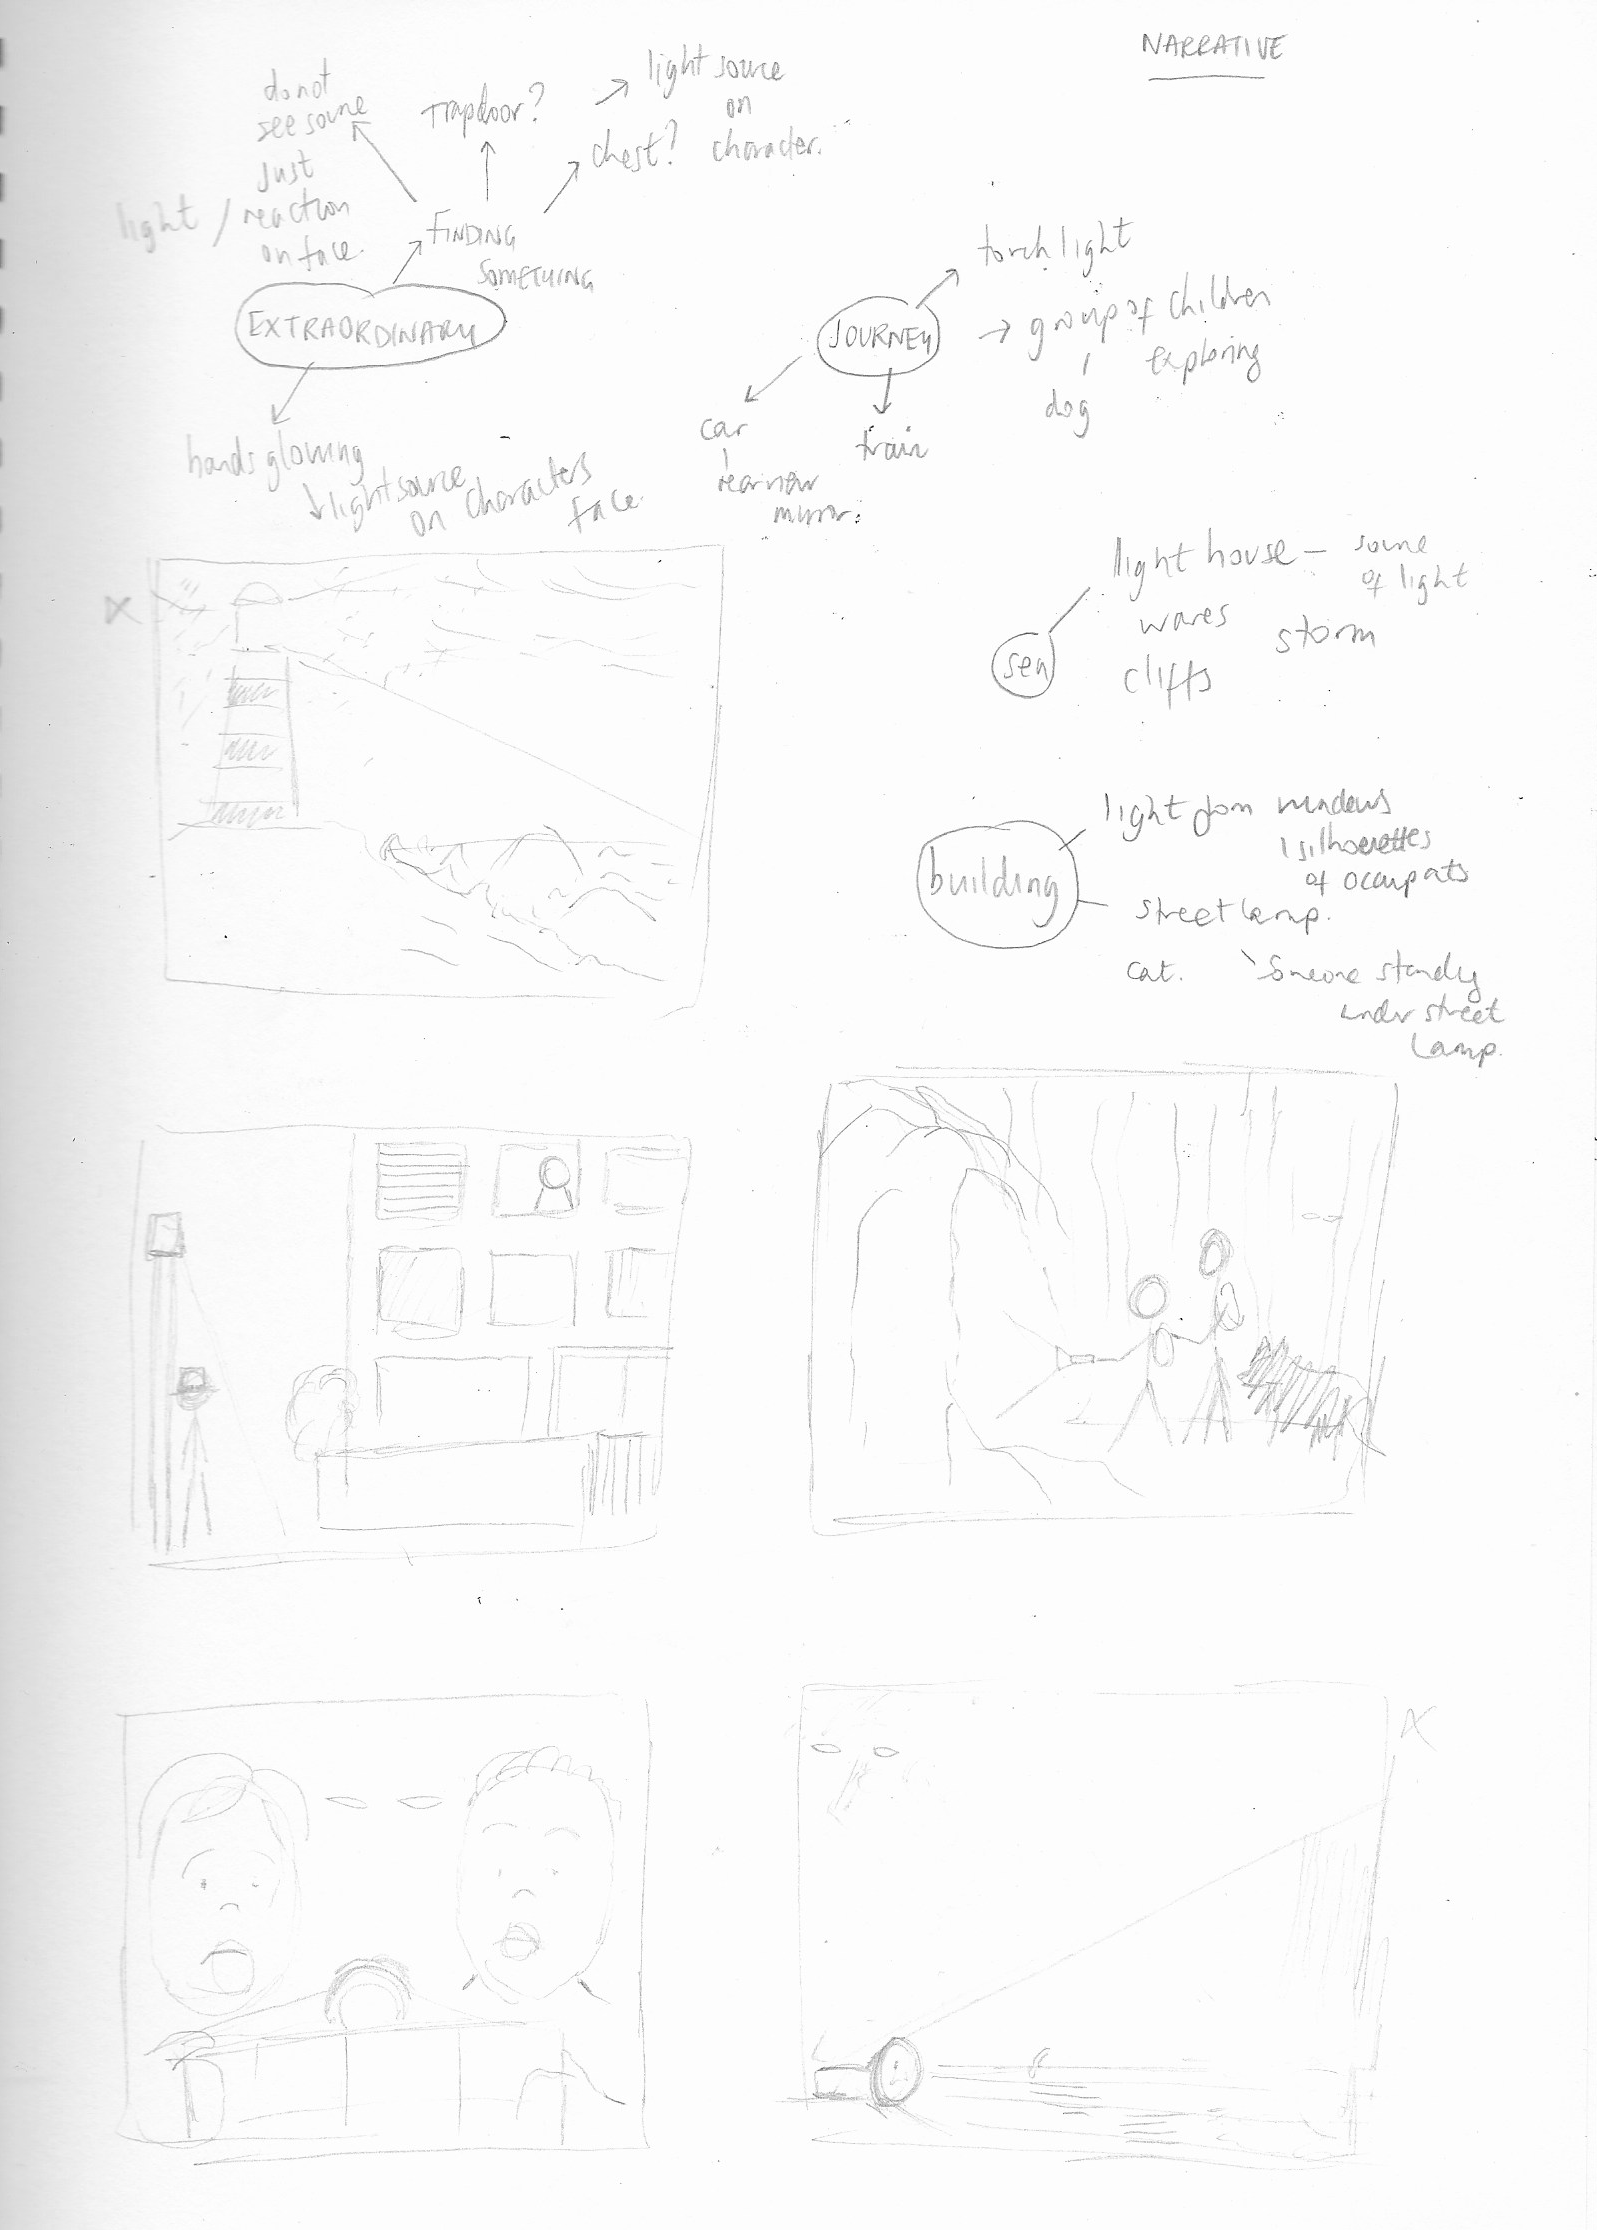 NARRATIVE
do not
see source
just
light / reaction
on face.
trapdoor?
light source
on
chest? character.
FINDING
SOMETHING
EXTRAORDINARY
hands glowing
light source
on characters
face.
JOURNEY
torch light
group of children
exploring
dog
car
rearview
mirror.
train
sea
light house - source
of light
waves
storm
cliffs
building
light from windows
silhouettes
of occupats
street lamp.
cat.
Someone standing
under street
lamp.